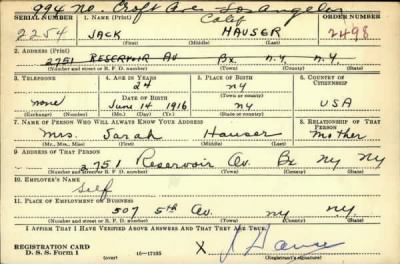 994 No. Croft Ave Los Angeles
Calif
SERIAL NUMBER 1. NAME (Print) ORDER NUMBER
2254 JACK HAUSER 2498
(First) (Middle) (Last)
2. ADDRESS (Print)
2751 RESERVOIR AV Bx. N.Y. N.Y.
(Number and street or R. F. D. number) (Town) (County) (State)
3. TELEPHONE 4. AGE IN YEARS 5. PLACE OF BIRTH 6. COUNTRY OF CITIZENSHIP
24 NY
(Town or county)
DATE OF BIRTH
none June 14 1916 NY USA
(Exchange) (Number) (Mo.) (Day) (Yr.) (State or country)
7. NAME OF PERSON WHO WILL ALWAYS KNOW YOUR ADDRESS 8. RELATIONSHIP OF THAT PERSON
Mrs. Sarah Hauser Mother
(Mr., Mrs., Miss) (First) (Middle) (Last)
9. ADDRESS OF THAT PERSON
2751 Reservoir Av. Bx NY NY
(Number and street or R. F. D. number) (Town) (County) (State)
10. EMPLOYER'S NAME
Self
11. PLACE OF EMPLOYMENT OR BUSINESS
507 5th Av. NY NY.
(Number and street or R. F. D. number) (Town) (County) (State)
I AFFIRM THAT I HAVE VERIFIED ABOVE ANSWERS AND THAT THEY ARE TRUE.
REGISTRATION CARD
D. S. S. Form 1 (over) 16—17105 X
(Registrant's signature)